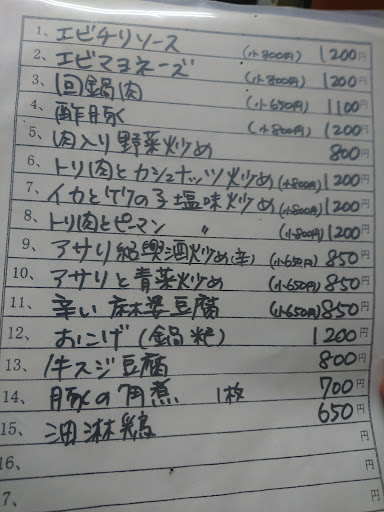 1、エビチリソース (小800円) 1200
2、エビマヨネーズ (小800円) 1200
3、回鍋肉 (小650円) 1100
4、酢豚 (小800円) 1200
5、肉入り野菜炒め 800
6、トリ肉とカシュナッツ炒め(小800円) 1200
7、イカとタケの子塩味炒め(小800円) 1200
8、トリ肉とピーマン 〃 (小800円) 1200
9、アサリ紹興酒炒め(辛) (小650円) 850
10、アサリと青菜炒め (小650円) 850
11、辛い麻婆豆腐 (小650円) 850
12、おこげ(鍋粑) 1200
13、牛スジ豆腐 800
14、豚の角煮 1枚 700
15、油淋鶏 650
16、 円
7、 円